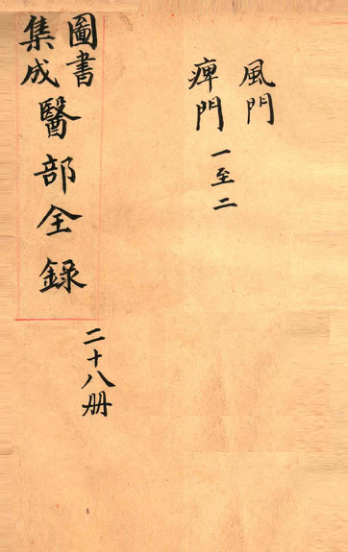 風門
痺門 一至二
圖書集成 醫部全録
二十八册